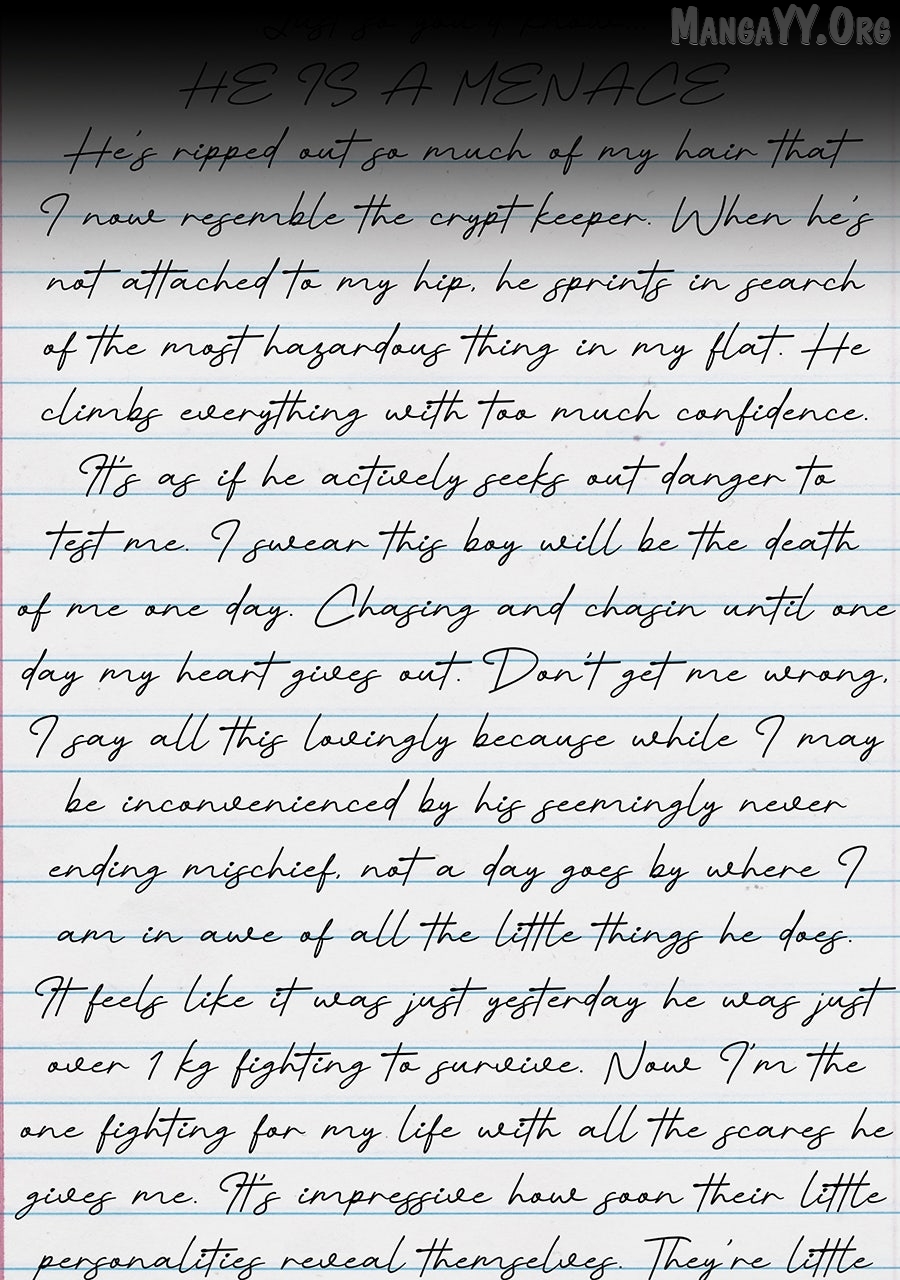 Just so you'd know...
MANGAYY.ORG
HE IS A MENACE
He's ripped out so much of my hair that
I now resemble the crypt keeper. When he's
not attached to my hip, he sprints in search
of the most hazardous thing in my flat. He
climbs everything with too much confidence.
It's as if he actively seeks out danger to
test me. I swear this boy will be the death
of me one day. Chasing and chasin until one
day my heart gives out. Don't get me wrong,
I say all this lovingly because while I may
be inconvenienced by his seemingly never
ending mischief, not a day goes by where I
am in awe of all the little things he does.
It feels like it was just yesterday he was just
over 1 kg fighting to survive. Now I'm the
one fighting for my life with all the scares he
gives me. It's impressive how soon their little
personalities reveal themselves. They're little